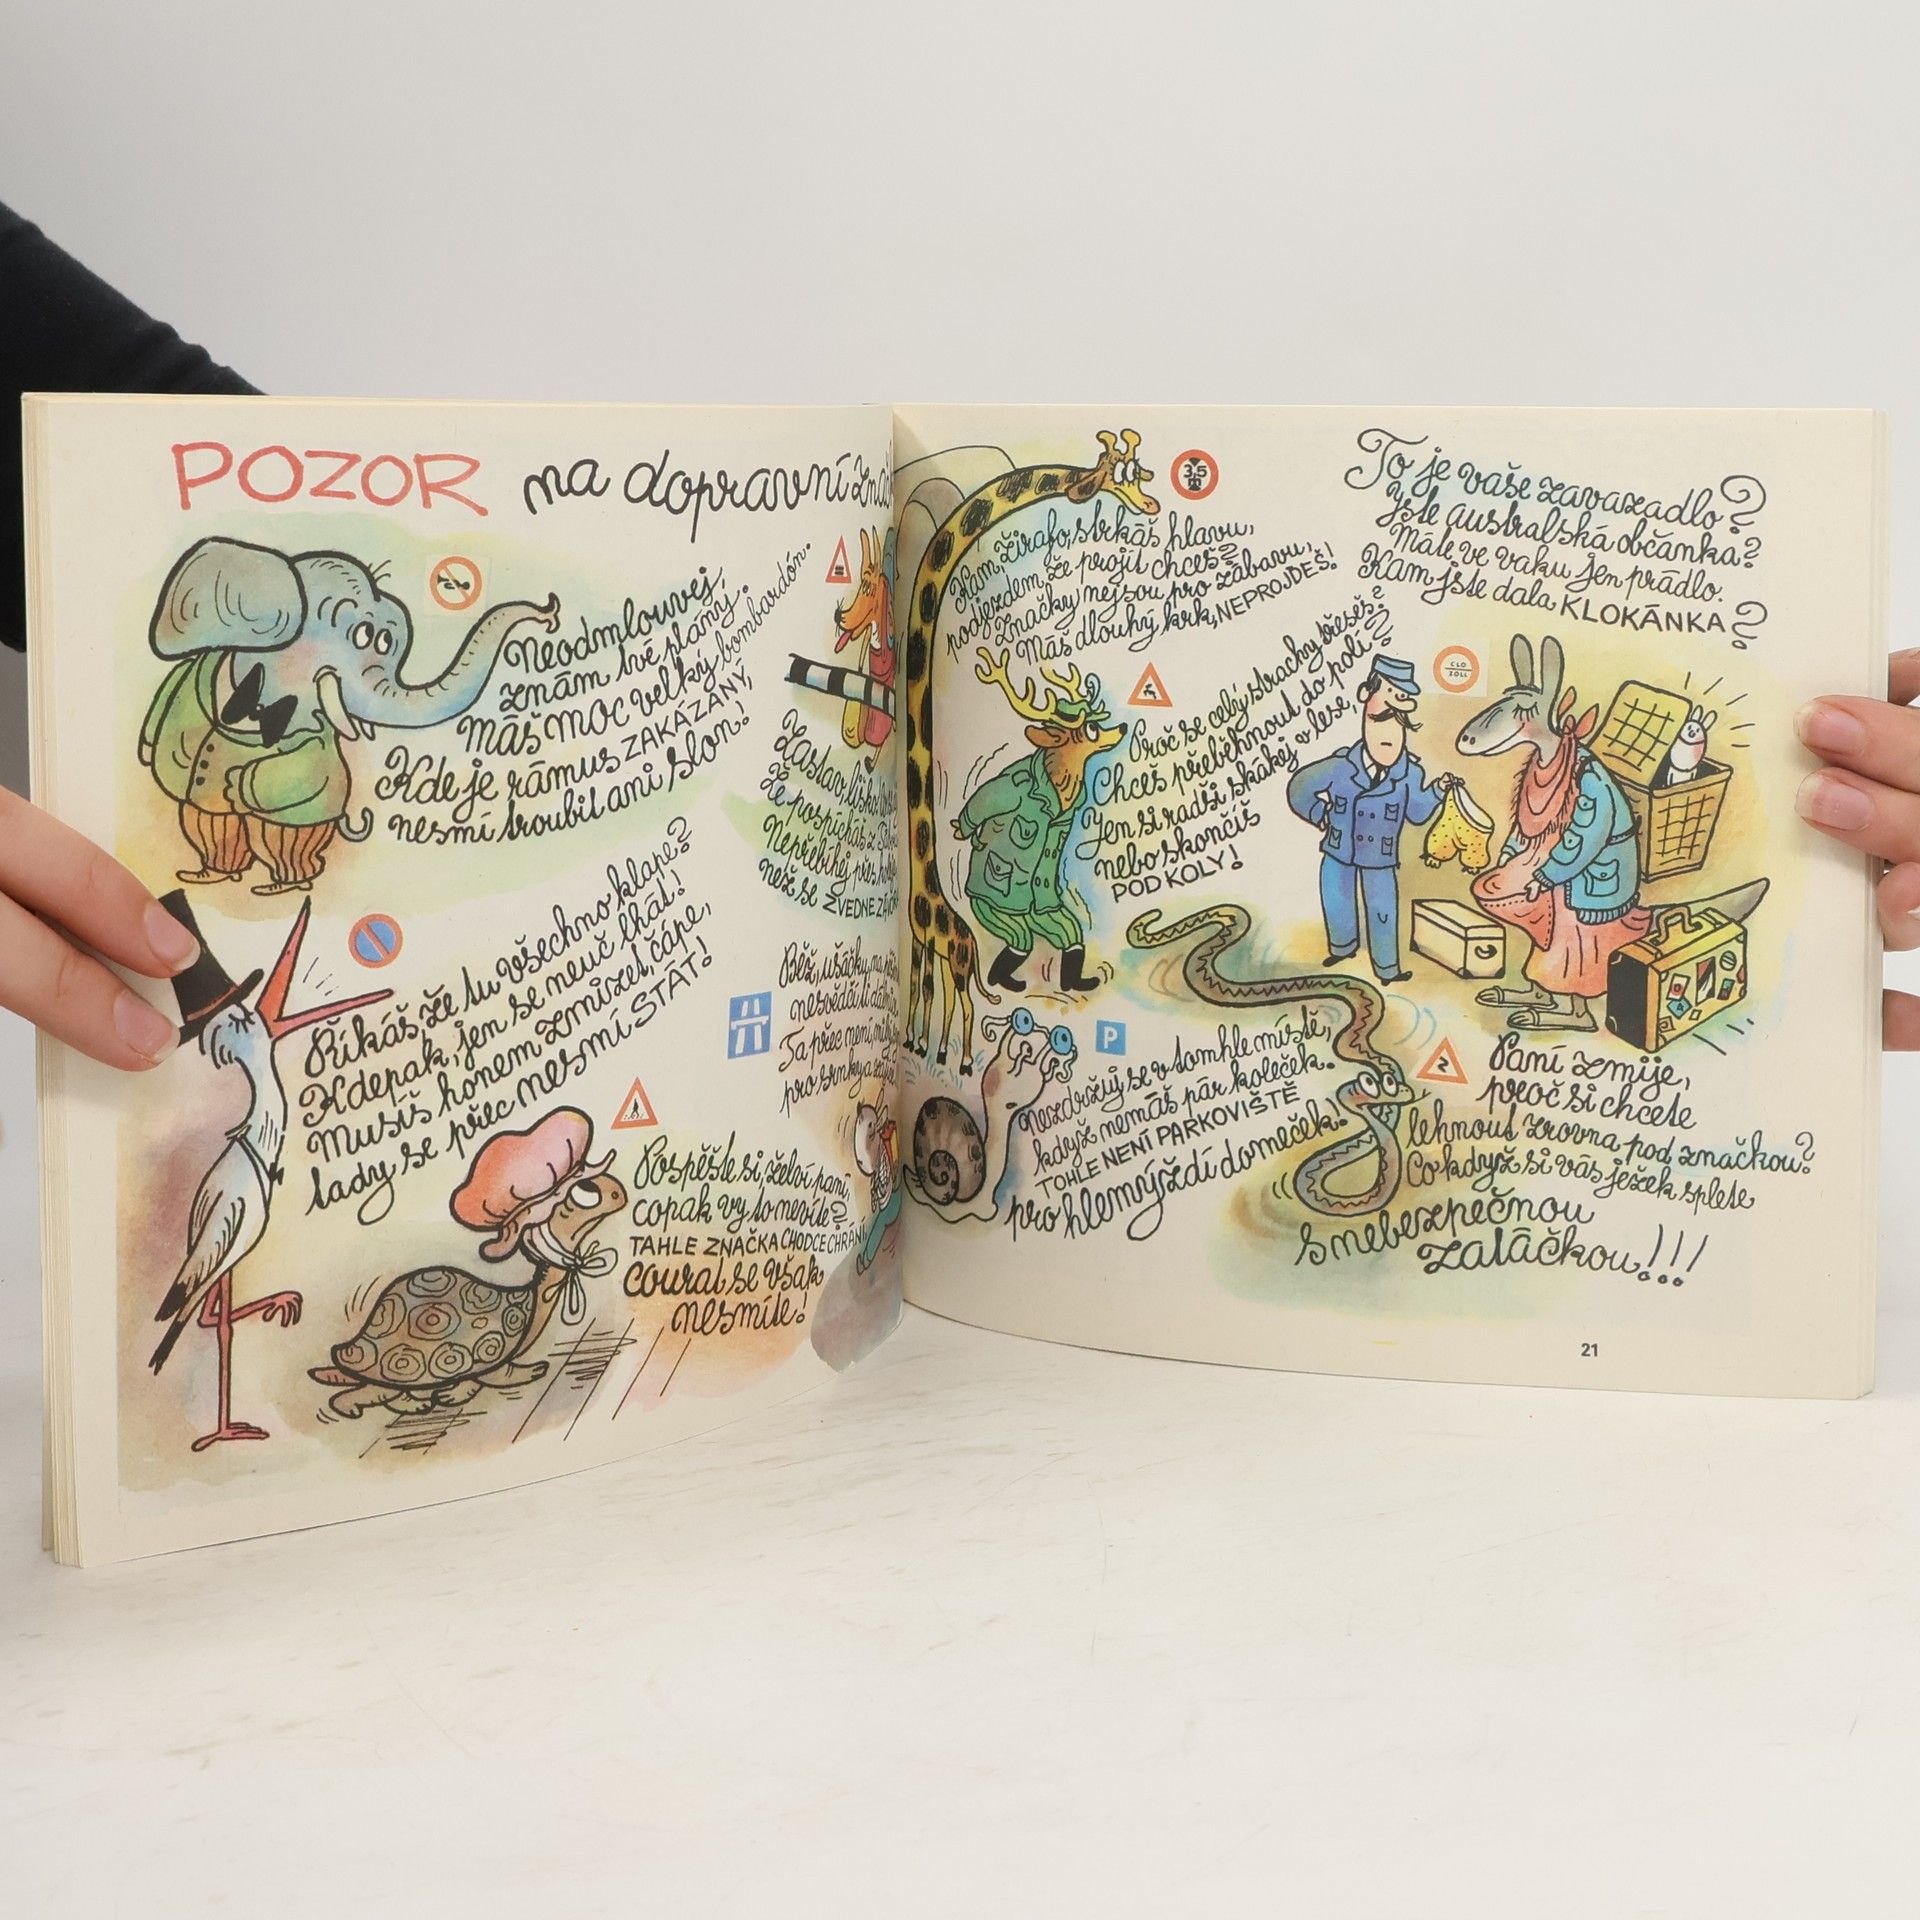 POZOR na dopravní
Neodmlouvej,
znám tvé plány.
Máš moc velký bombardón.
Kde je rámus ZAKÁZANÝ,
nesmí troubit ani slon!
Zastav, liško
že pospícháš z
Nepřebíhej přes
než se ZVEDNE
Říkáš, že tu všechno klape?
Kdepak, jen se neuč lhát!
Musíš honem zmizet, čápe,
tady se přec NESMÍ STÁT!
Běž, ušáčku, na
nesvědčí ti
Ta přec není
pro srnky a
Pospěšte si, želví paní,
copak vy to nevíte?
TAHLE ZNAČKA CHODCE CHRÁNÍ,
courat se však
nesmíte!
3,5
m
Kam, žirafo, strkáš hlavu,
podjezdem, že projít chceš?
Značky nejsou pro zábavu,
Máš dlouhý krk, NEPROJDEŠ!
Proč se celý strachy třeseš?
Chceš přeběhnout do polí?
Jen si radši skákej v lese,
nebo skončíš
POD KOLY!
To je vaše zavazadlo?
Jste australská občanka?
Máte ve vaku jen prádlo.
Kam jste dala KLOKÁNKA?
CLO
ZOLL
P
Nezdržuj se v tomhle místě,
když nemáš pár koleček.
TOHLE NENÍ PARKOVIŠTĚ
pro hlemýždí domeček!
Paní zmije,
proč si chcete
lehnout zrovna pod značkou?
Co když si vás ježek splete
s nebezpečnou
zatáčkou!!!
21